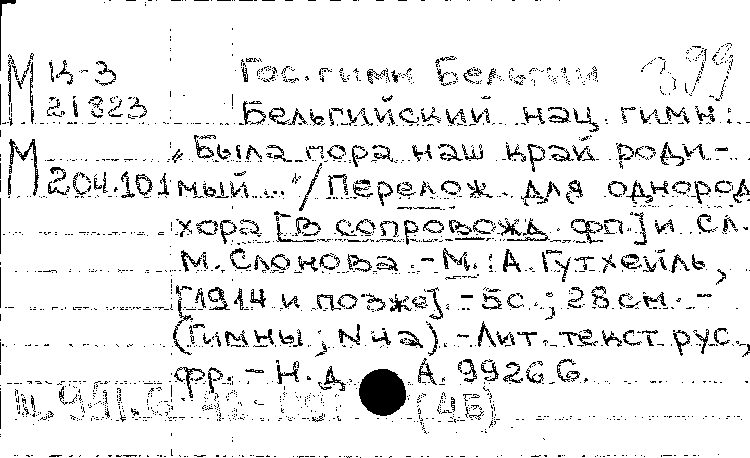 М К-3 Гос. гимн Бельгии 399
21823 Бельгийский нац. гимн:
М „Была пора наш край роди-
204.101 мый..."/Перелож. для однород
хора [в сопровожд. фп.] и сл.
М. Слонова. - М.: А. Гутхейль,
[1914 и позже]. - 5с.; 28см. -
(Гимны; N4а). - Лит. текст рус.,
фр. - Н.д. А. 9926 G.
(4Б)